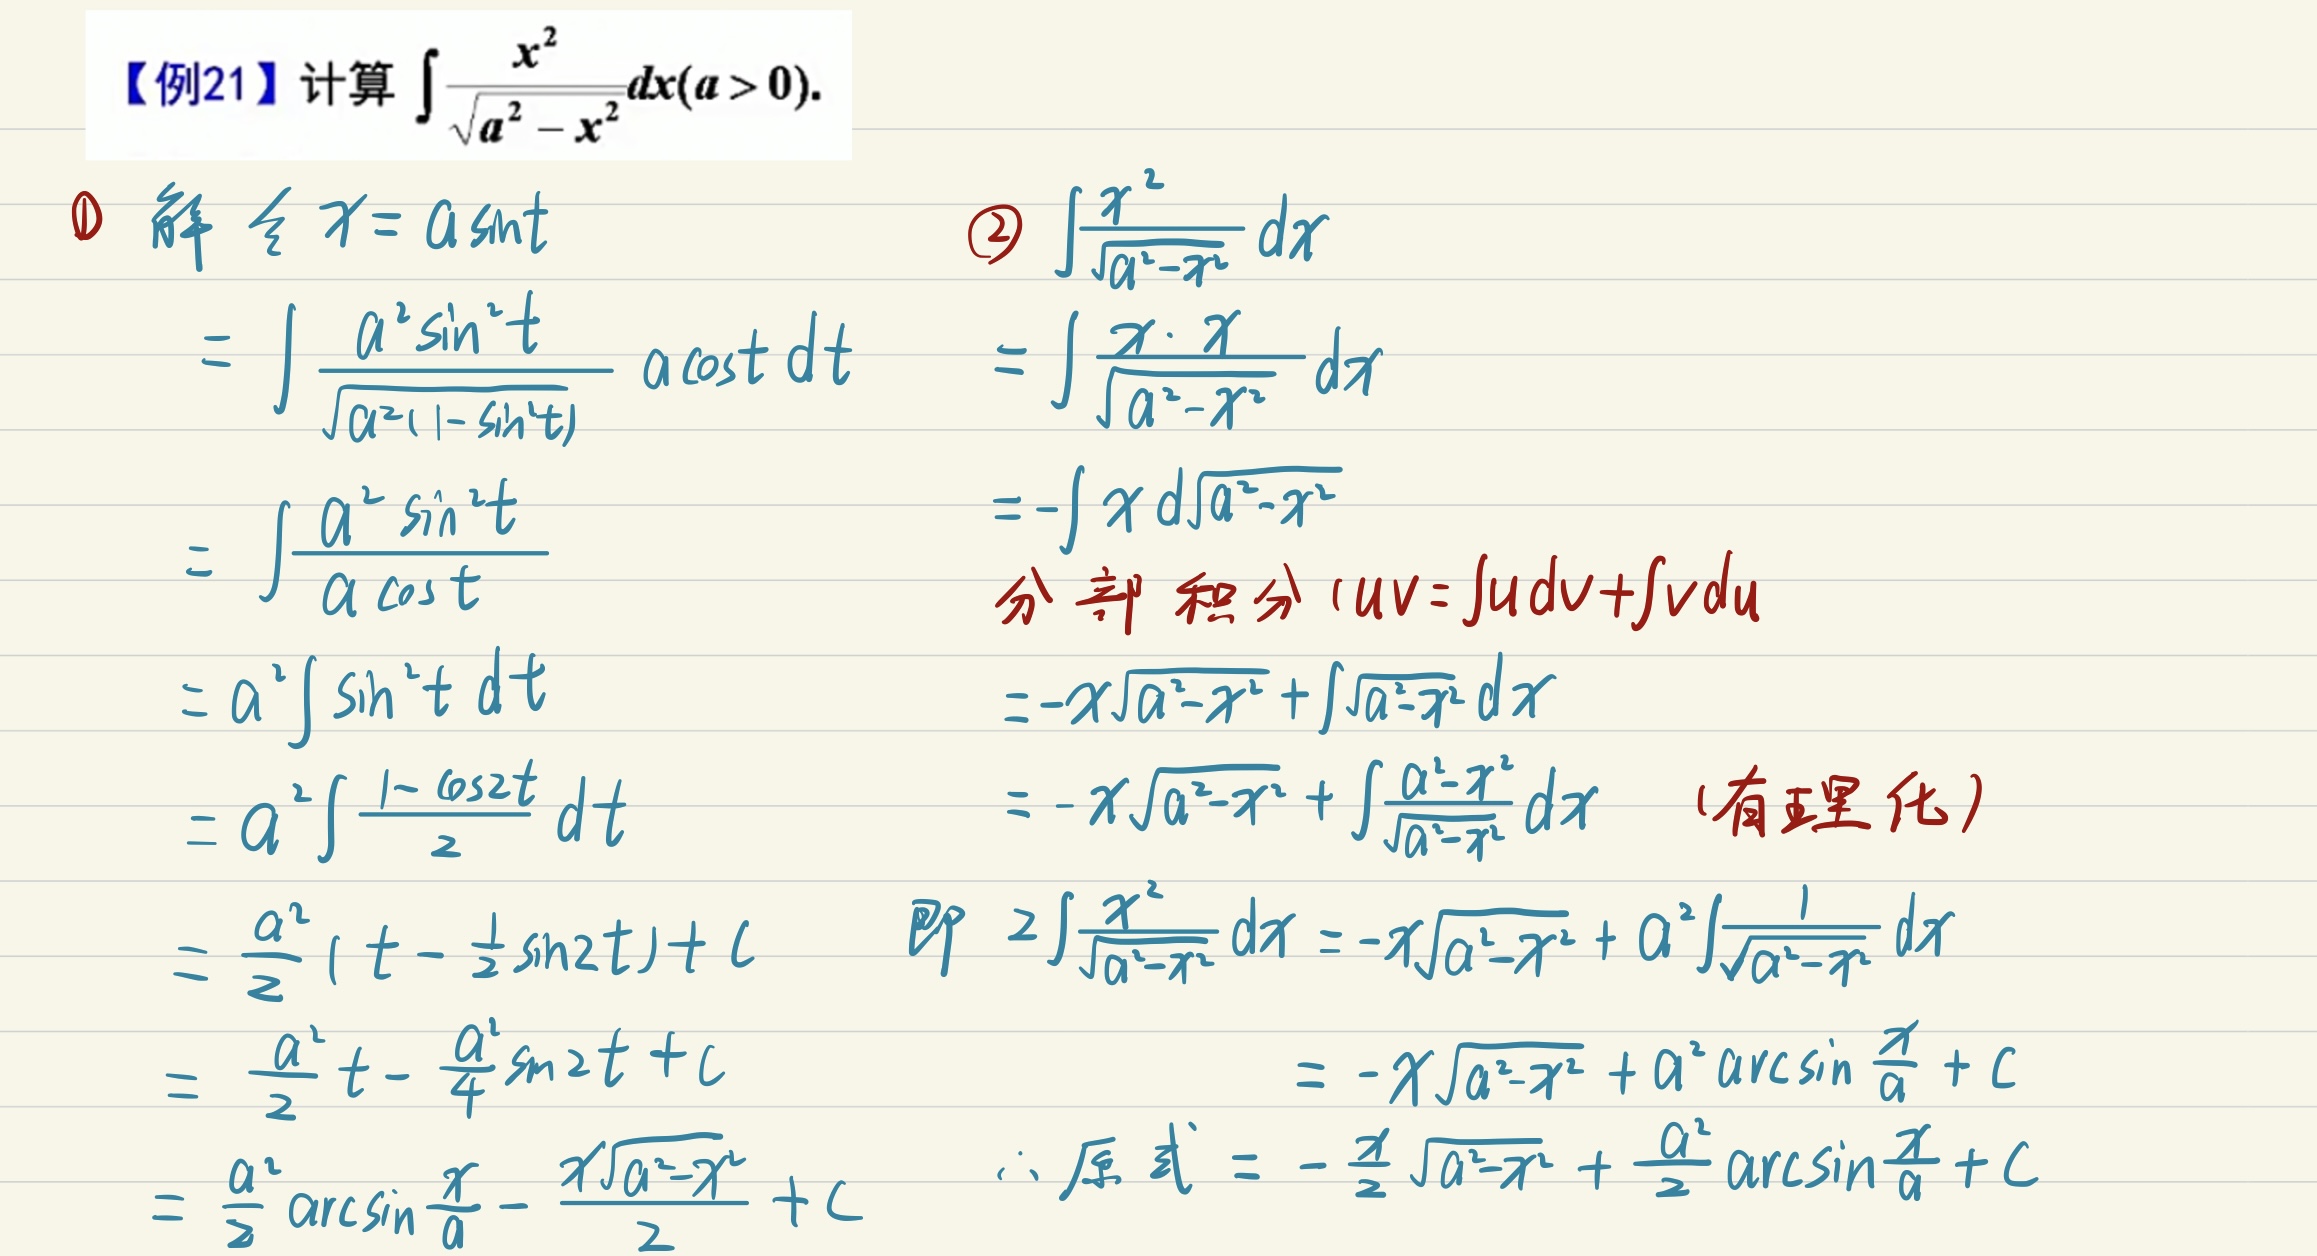 【例21】计算 ∫ x²/√(a² − x²) dx (a > 0).
① 解 令 x = a sint
= ∫ a²sin²t/√(a²(1−sin²t)) a cost dt
= ∫ a² sin²t/(a cos t)
= a² ∫ sin²t dt
= a² ∫ (1−cos2t)/2 dt
= a²/2 (t − 1/2 sin2t) + C
= a²/2 t − a²/4 sin2t + C
= a²/2 arcsin x/a − x√(a²−x²)/2 + C
② ∫ x²/√(a²−x²) dx
= ∫ x·x/√(a²−x²) dx
= −∫ x d√(a²−x²)
分部积分 ( uv = ∫udv + ∫vdu
= −x√(a²−x²) + ∫√(a²−x²) dx
= −x√(a²−x²) + ∫ (a²−x²)/√(a²−x²) dx (有理化)
即 2∫ x²/√(a²−x²) dx = −x√(a²−x²) + a² ∫ 1/√(a²−x²) dx
= −x√(a²−x²) + a² arcsin x/a + C
∴ 原式 = −x/2 √(a²−x²) + a²/2 arcsin x/a + C